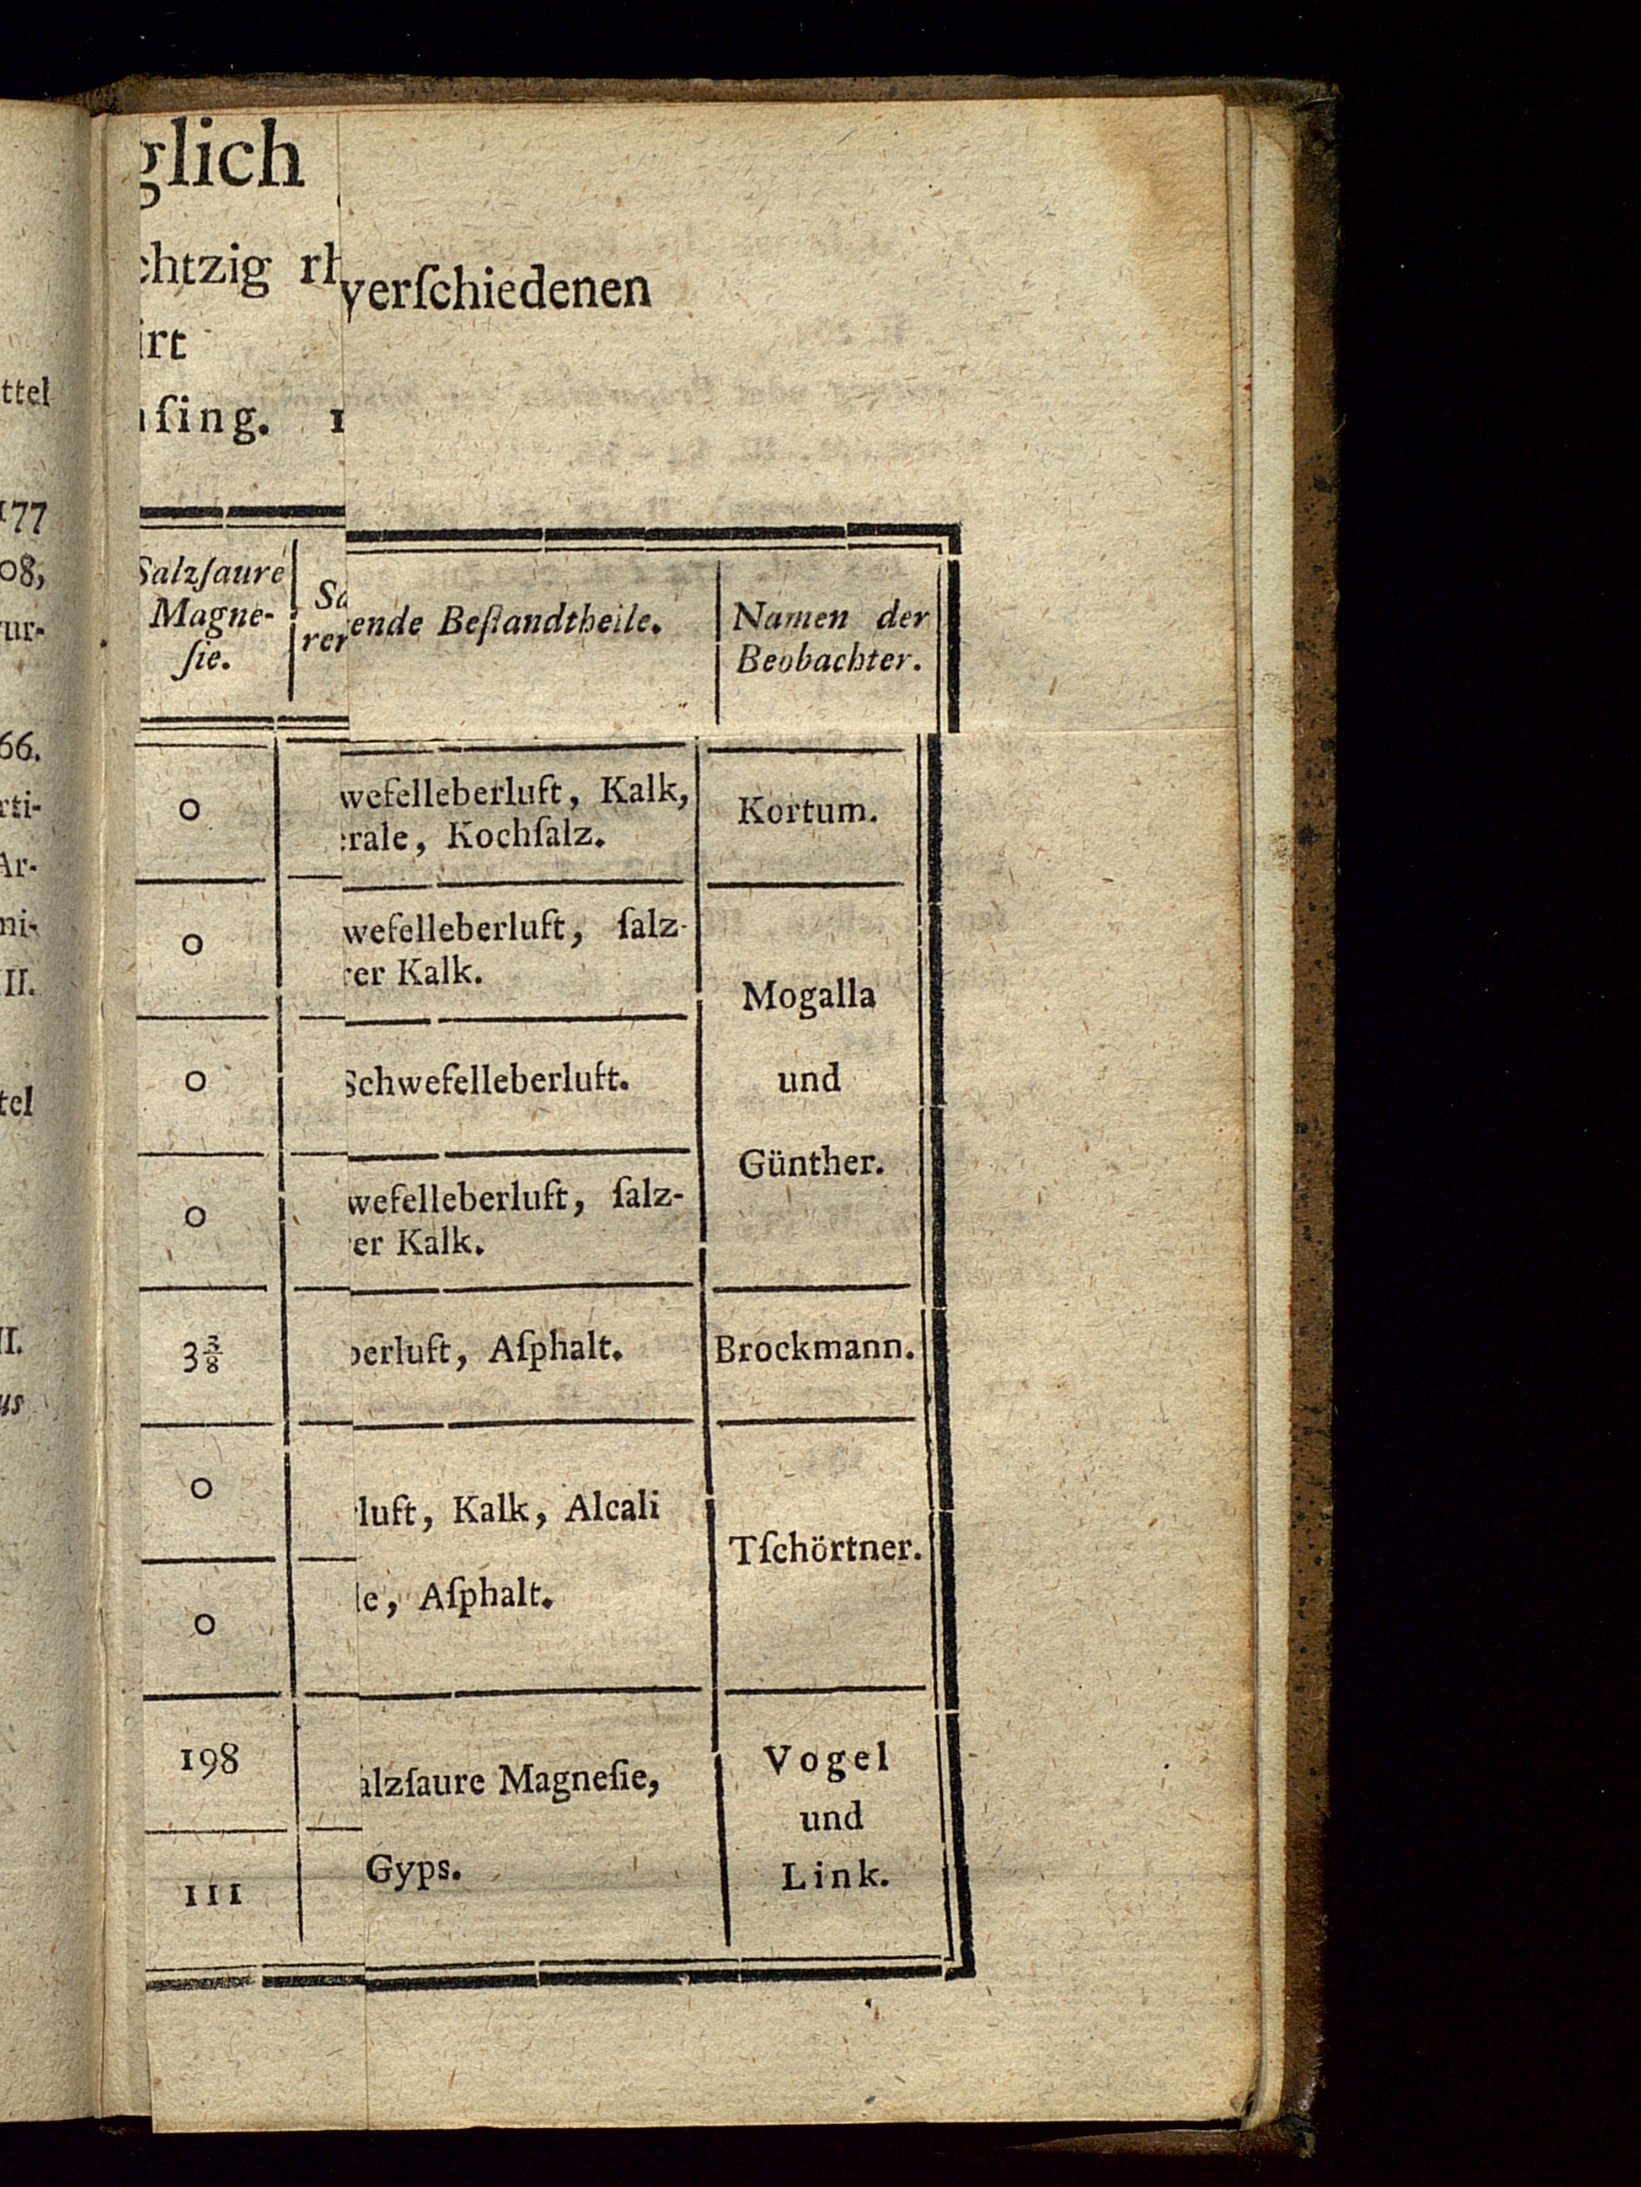 ttel
177
08,
ur-
66.
rti-
Ar-
ni-
II.
tel
II.
us
glich
chtzig rh
irt
ſing. 1
verſchiedenen
Salzſaure
Magne-
ſie.
Sa
rer
ende Beſtandtheile.
Namen der
Beobachter.
0
wefelleberluft, Kalk,
rale, Kochſalz.
Kortum.
0
wefelleberluft, ſalz-
rer Kalk.
0
Schwefelleberluft.
0
wefelleberluft, ſalz-
er Kalk.
Mogalla
und
Günther.
3 3/8
berluft, Aſphalt.
Brockmann.
0
luft, Kalk, Alcali
0
le, Aſphalt.
Tſchörtner.
198
alzſaure Magneſie,
111
Gyps.
Vogel
und
Link.